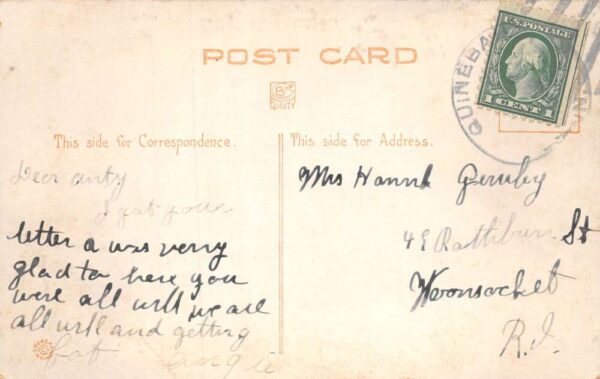 POST CARD
U.S. POSTAGE
1 CENT 1
QUINEBA
This side for Correspondence.
This side for Address.
Dear anty
I got your
letter a was verry
glad to here you
were all will we are
all will and getting
fat Angie
Mrs Hannh
St
Woonsocket
R.I.